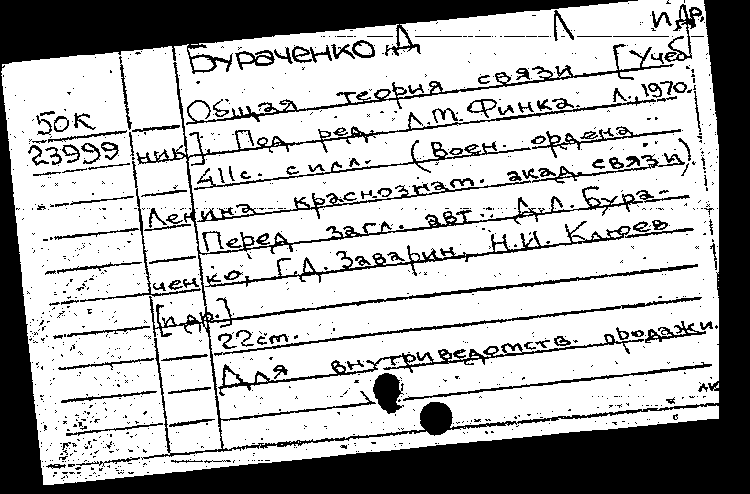 Бураченко Д Л и др.
Общая теория связи [Учеб
50к
ник]. Под ред. Л.М. Финка. Л., 1970.
23999
411с. с илл. (Воен. ордена
Ленина краснознам. акад. связи)
Перед загл. авт.: Д.Л. Бура-
ченко, Г.Д. Заварин, Н.И. Клюев
[и др.]
22см.
Для внутриведомств. продажи.